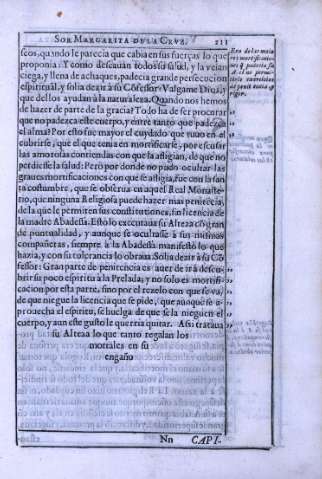 SOR MARGARITA DE LA CRVZ. 211
seos, quando le parecia que cabia en sus fuerças lo que
proponia: Y como deseauan todos su salud, y la veían
ciega, y llena de achaques, padecia grande persecucion
espiritual, y solia dezir a su Cõfessor: Valgame Dios, y
que dellos ayudan a la naturaleza. Quando nos hemos
de hazer de parte de la gracia? Todo ha de ser procurar
que no padezca este cuerpo, y entre tanto que padezca
el alma? Por esto fue mayor el cuydado que tuuo en el
cubrirse, que el que tenia en mortificarse, por escusar
las amorosas contiendas con que la afligian, de que no
perdiesse la salud: Pero por donde no pudo ocultar las
graues mortificaciones con que se afligia, fue con la san
ta costumbre, que se obserua en aquel Real Monaste-
rio, que ninguna Religiosa puede hazer mas penitēcia,
de la que le permiten sus constituciones, sin licencia de
la madre Abadessa. Esto lo executaua su Alteza cõ gran
de puntualidad, y aunque se ocultasse à sus mismas
compañeras, siempre à la Abadesa manifestò lo que
hazia, y con su tolerancia lo obraua. Solia dezir a su Cõ
fessor: Gran parte de penitencia es auer de ir à descu-
brir su poco espiritu a la Prelada; y no solo es mortifi-
cacion por esta parte, sino por el rezelo con que se va,
de que niegue la licencia que se pide, que aunque se a-
prouecha el espiritu, se huelga de que se la nieguen el
cuerpo, y aun este gusto le querria quitar. Assi trataua
su Alteza lo que tanto regalan los
mortales en su
engaño
Nn CAPI-
Era de las maio
res mortificacio
nes q̃ padecia su
A. el no permi-
tirla exercicios
de penitencia q̃